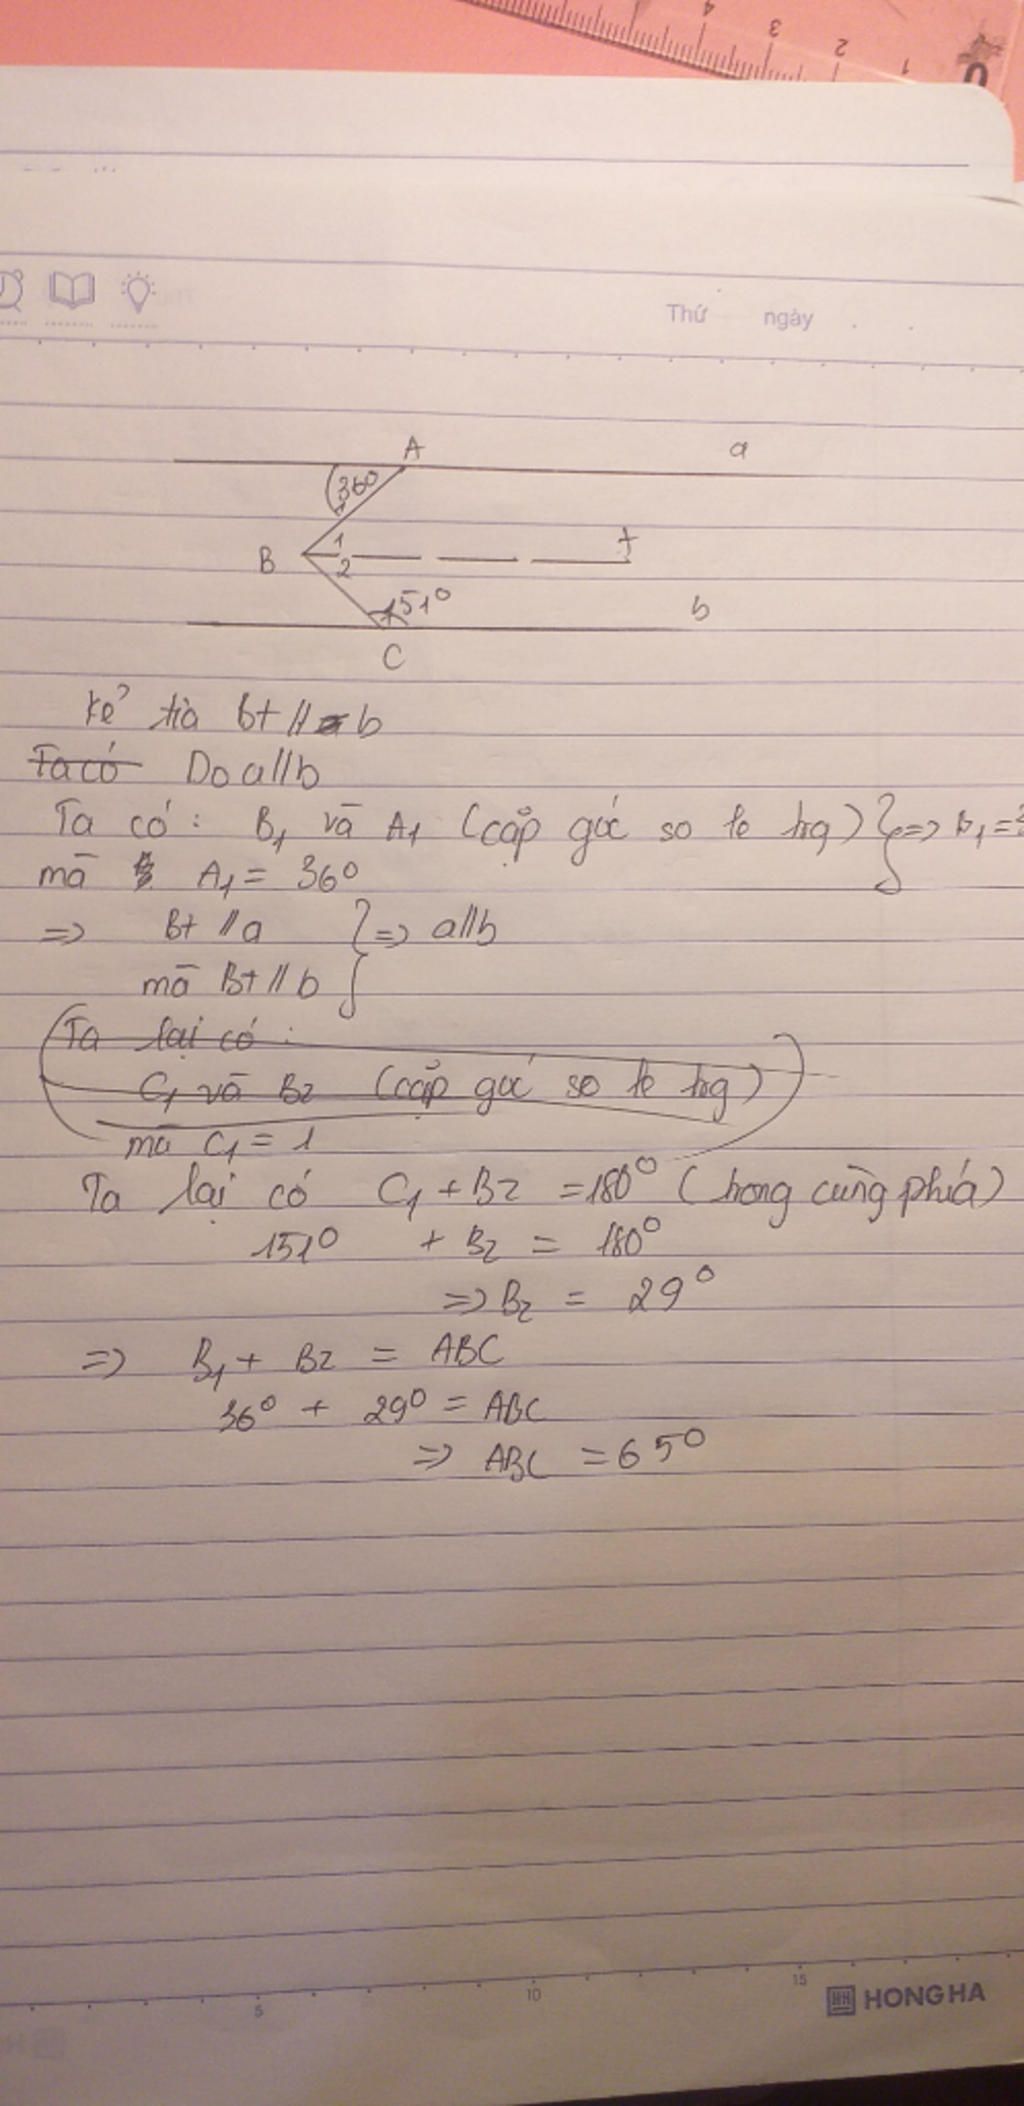 4 3 2 1 0
Thứ ngày
A a
36°
1
B 1 t
2
151° b
C
kẻ tia Bt // b
Ta có Do a//b
Ta có: B1 và A1 (cặp góc so le trg) } => B1 =
mà A1 = 36°
=> Bt // a } => a//b
mà Bt // b
Ta lại có:
C1 và B2 (cặp góc so le trg)
mà C1 = 1
Ta lại có C1 + B2 = 180° (trong cùng phía)
151° + B2 = 180°
=> B2 = 29°
=> B1 + B2 = ABC
36° + 29° = ABC
=> ABC = 65°
5 10 15
HH HONG HA